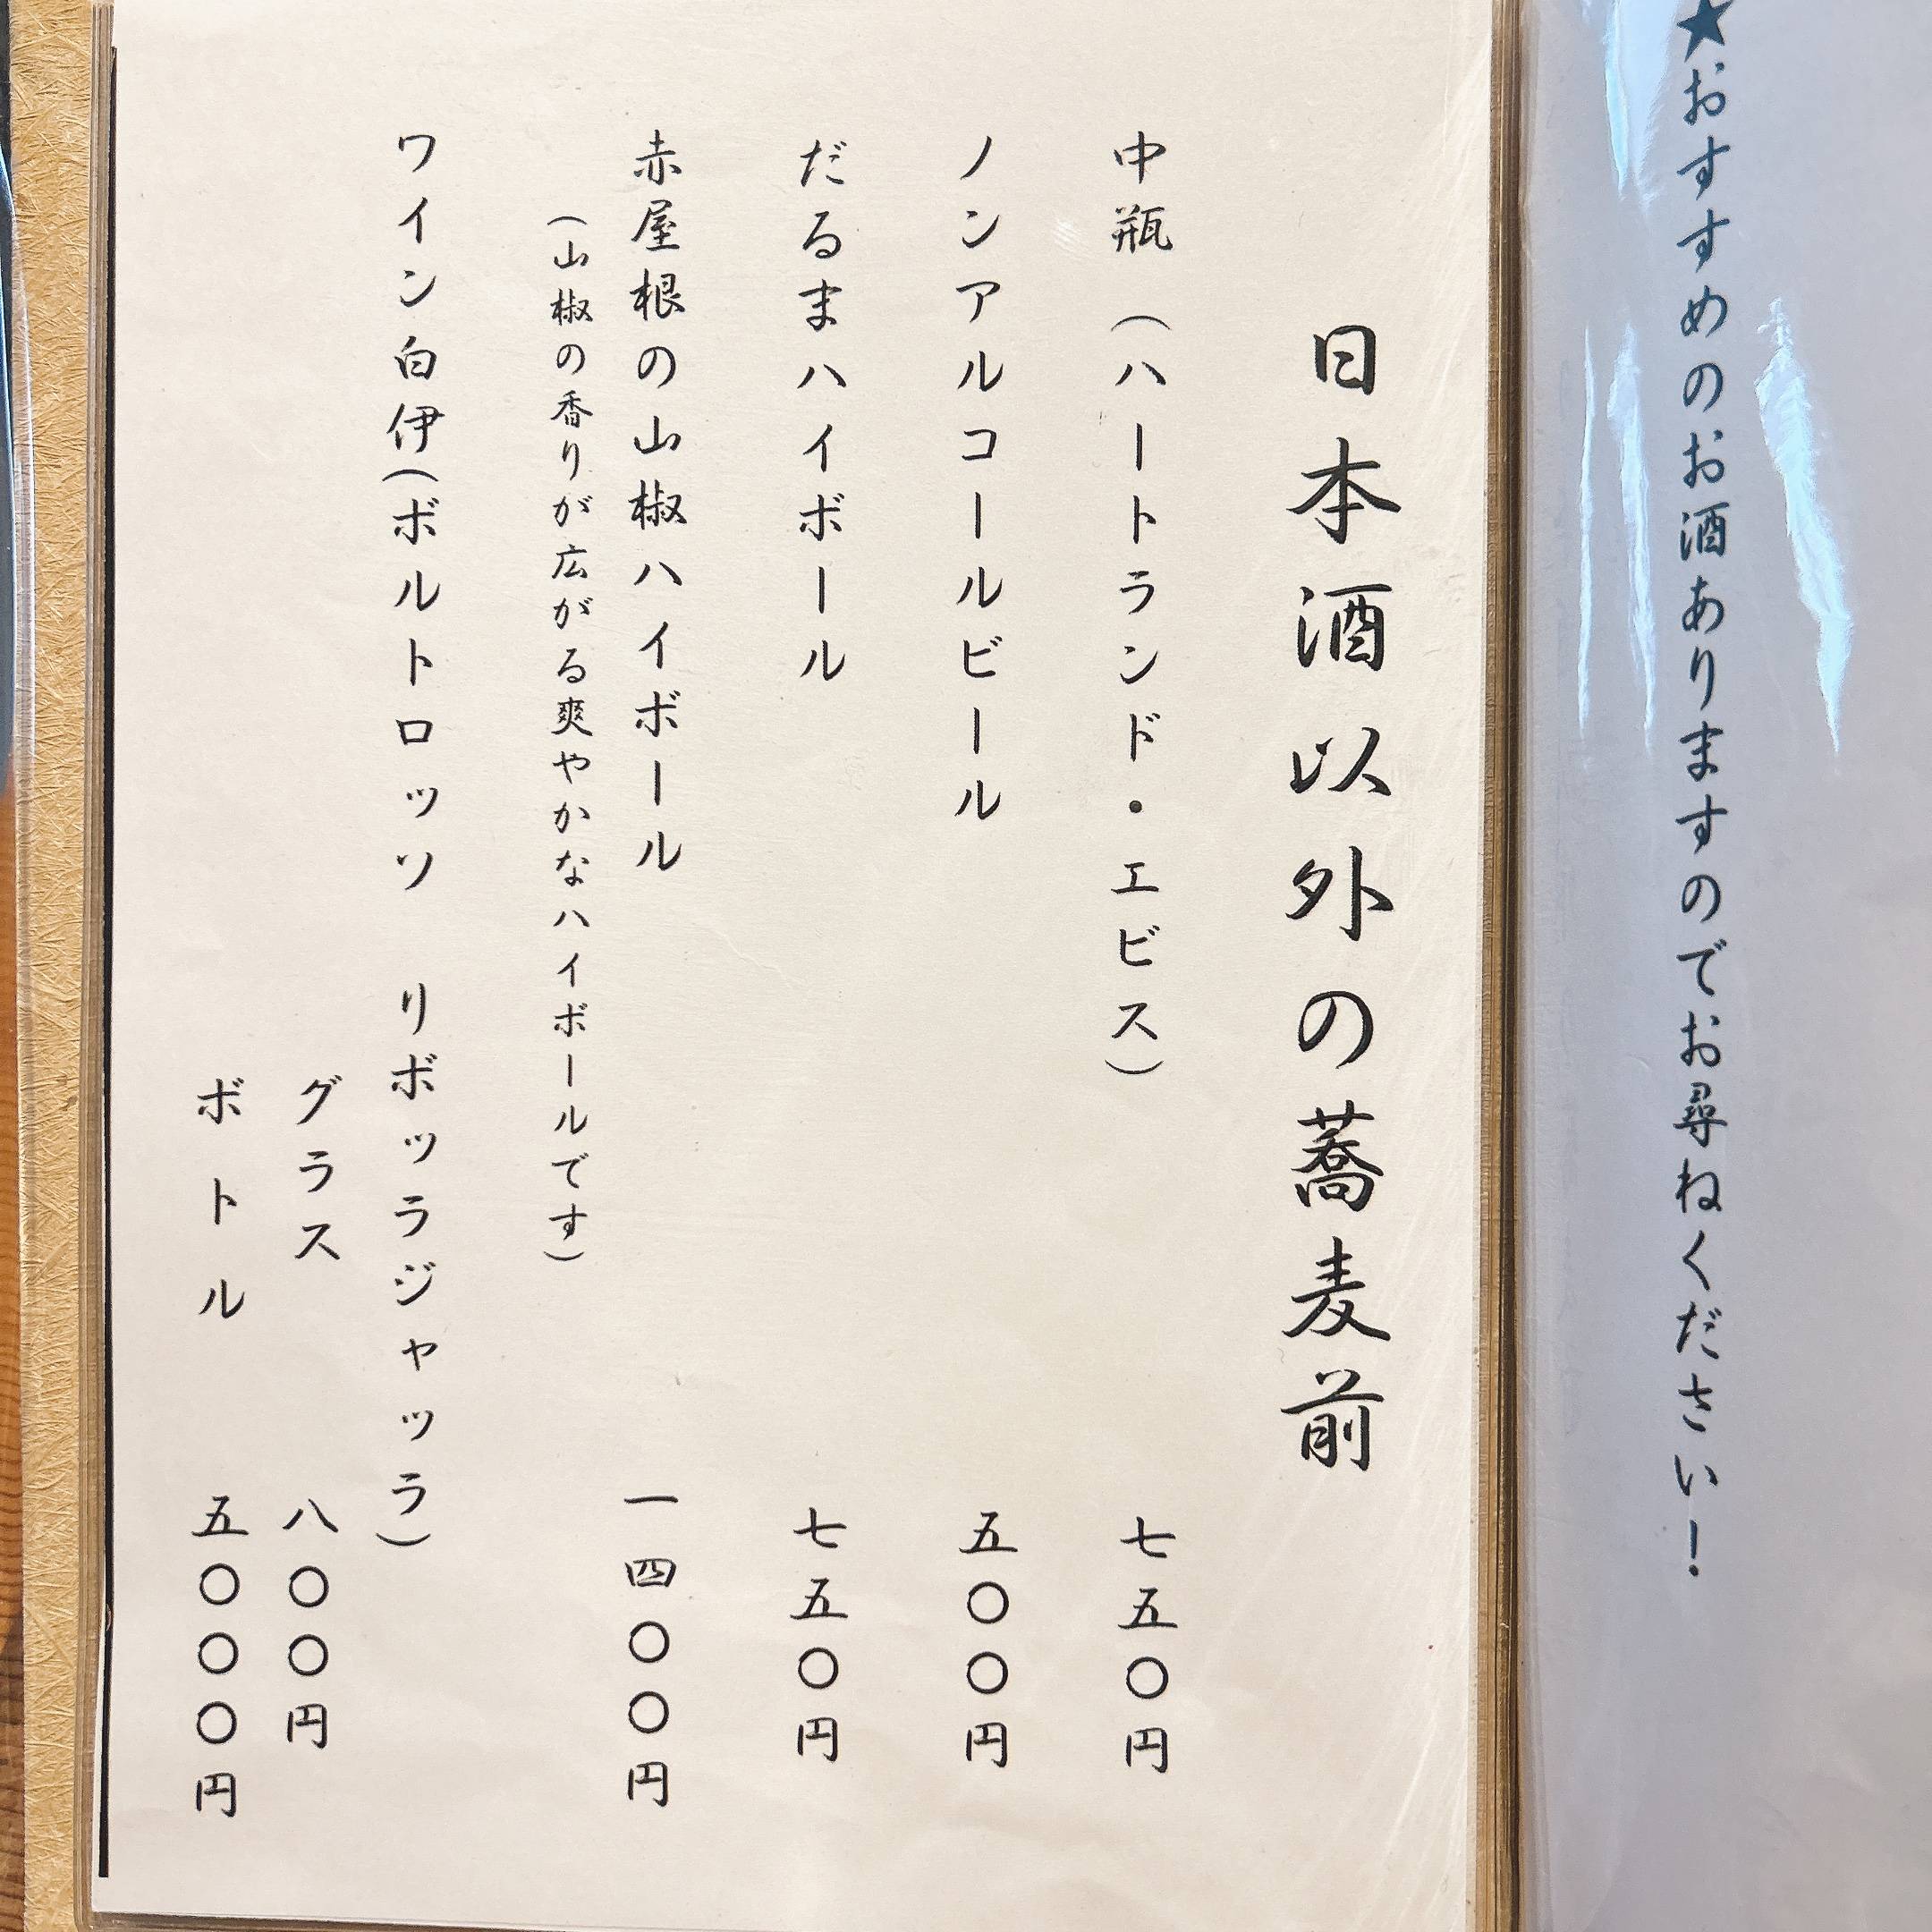 ★おすすめのお酒ありますのでお尋ねください！
日本酒以外の蕎麦前
中瓶（ハートランド・エビス） 七五〇円
ノンアルコールビール 五〇〇円
だるまハイボール 七五〇円
赤屋根の山椒ハイボール 一四〇〇円
（山椒の香りが広がる爽やかなハイボールです）
ワイン白伊（ボルトロッソ リボッラジャッラ）
グラス 八〇〇円
ボトル 五〇〇〇円